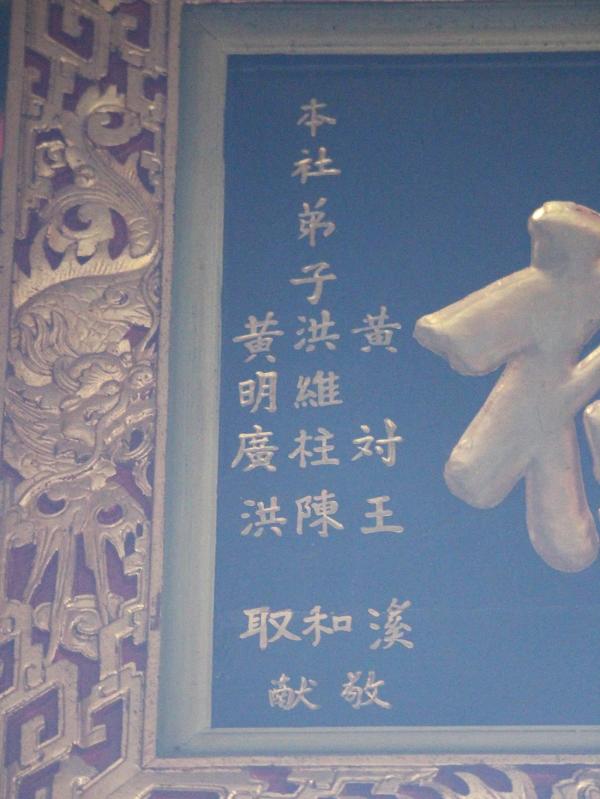 黃対王溪
本社弟子洪維柱陳和
黃明廣洪取
敬献